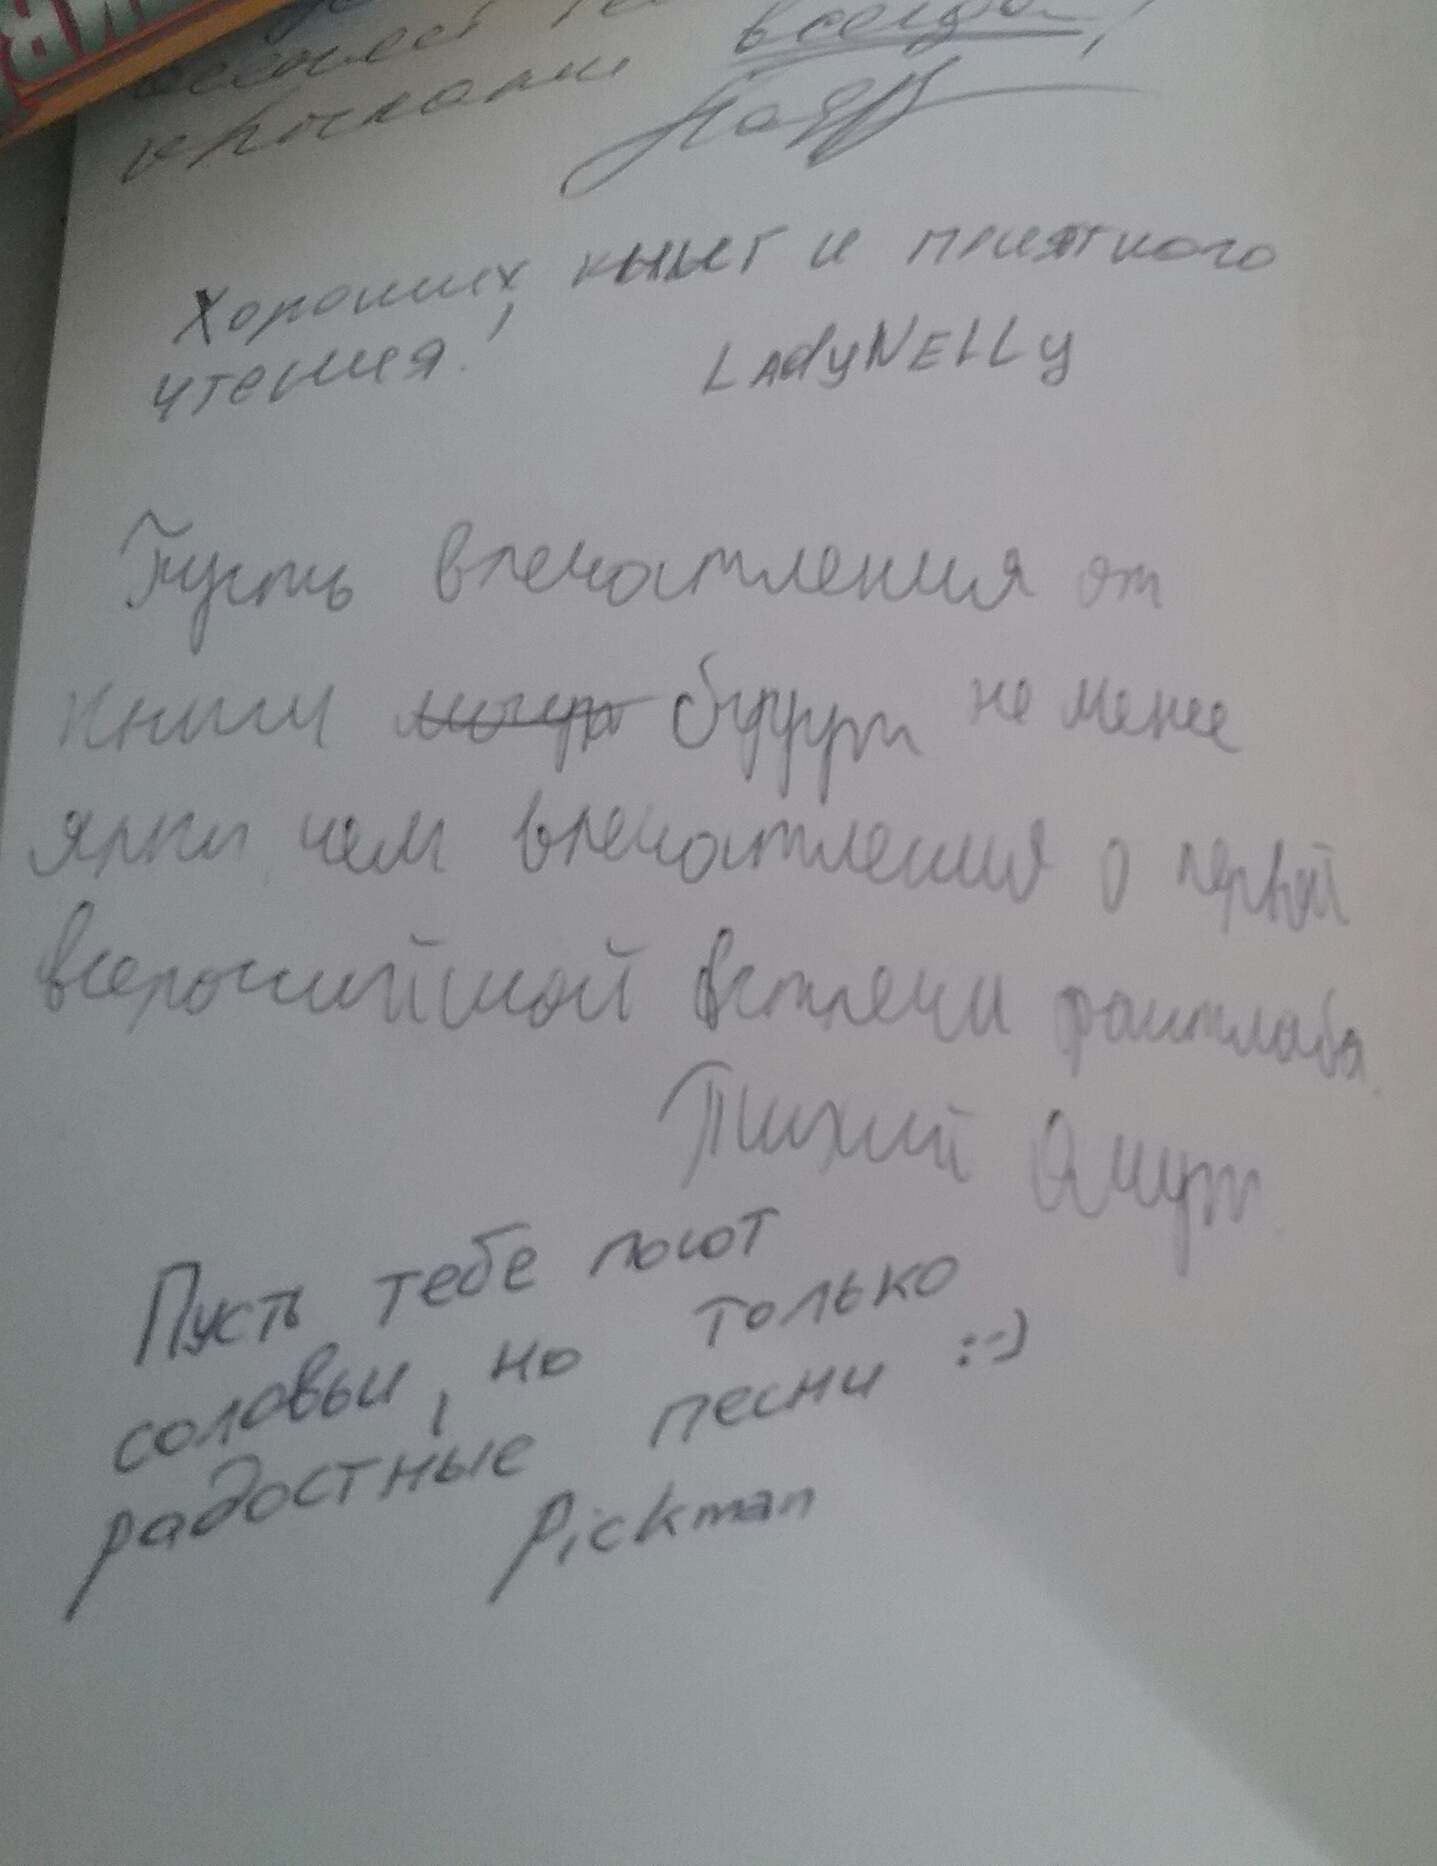 крыльями всегда!
Хороших книг и приятного
чтения! LAdyNELLy
Пусть впечатления от
книги будут не менее
ярки, чем впечатления о первой
всеросийской встречи фантлаба.
Тихий Омут
Пусть тебе поют
соловьи, но только
радостные песни :-)
Pickman